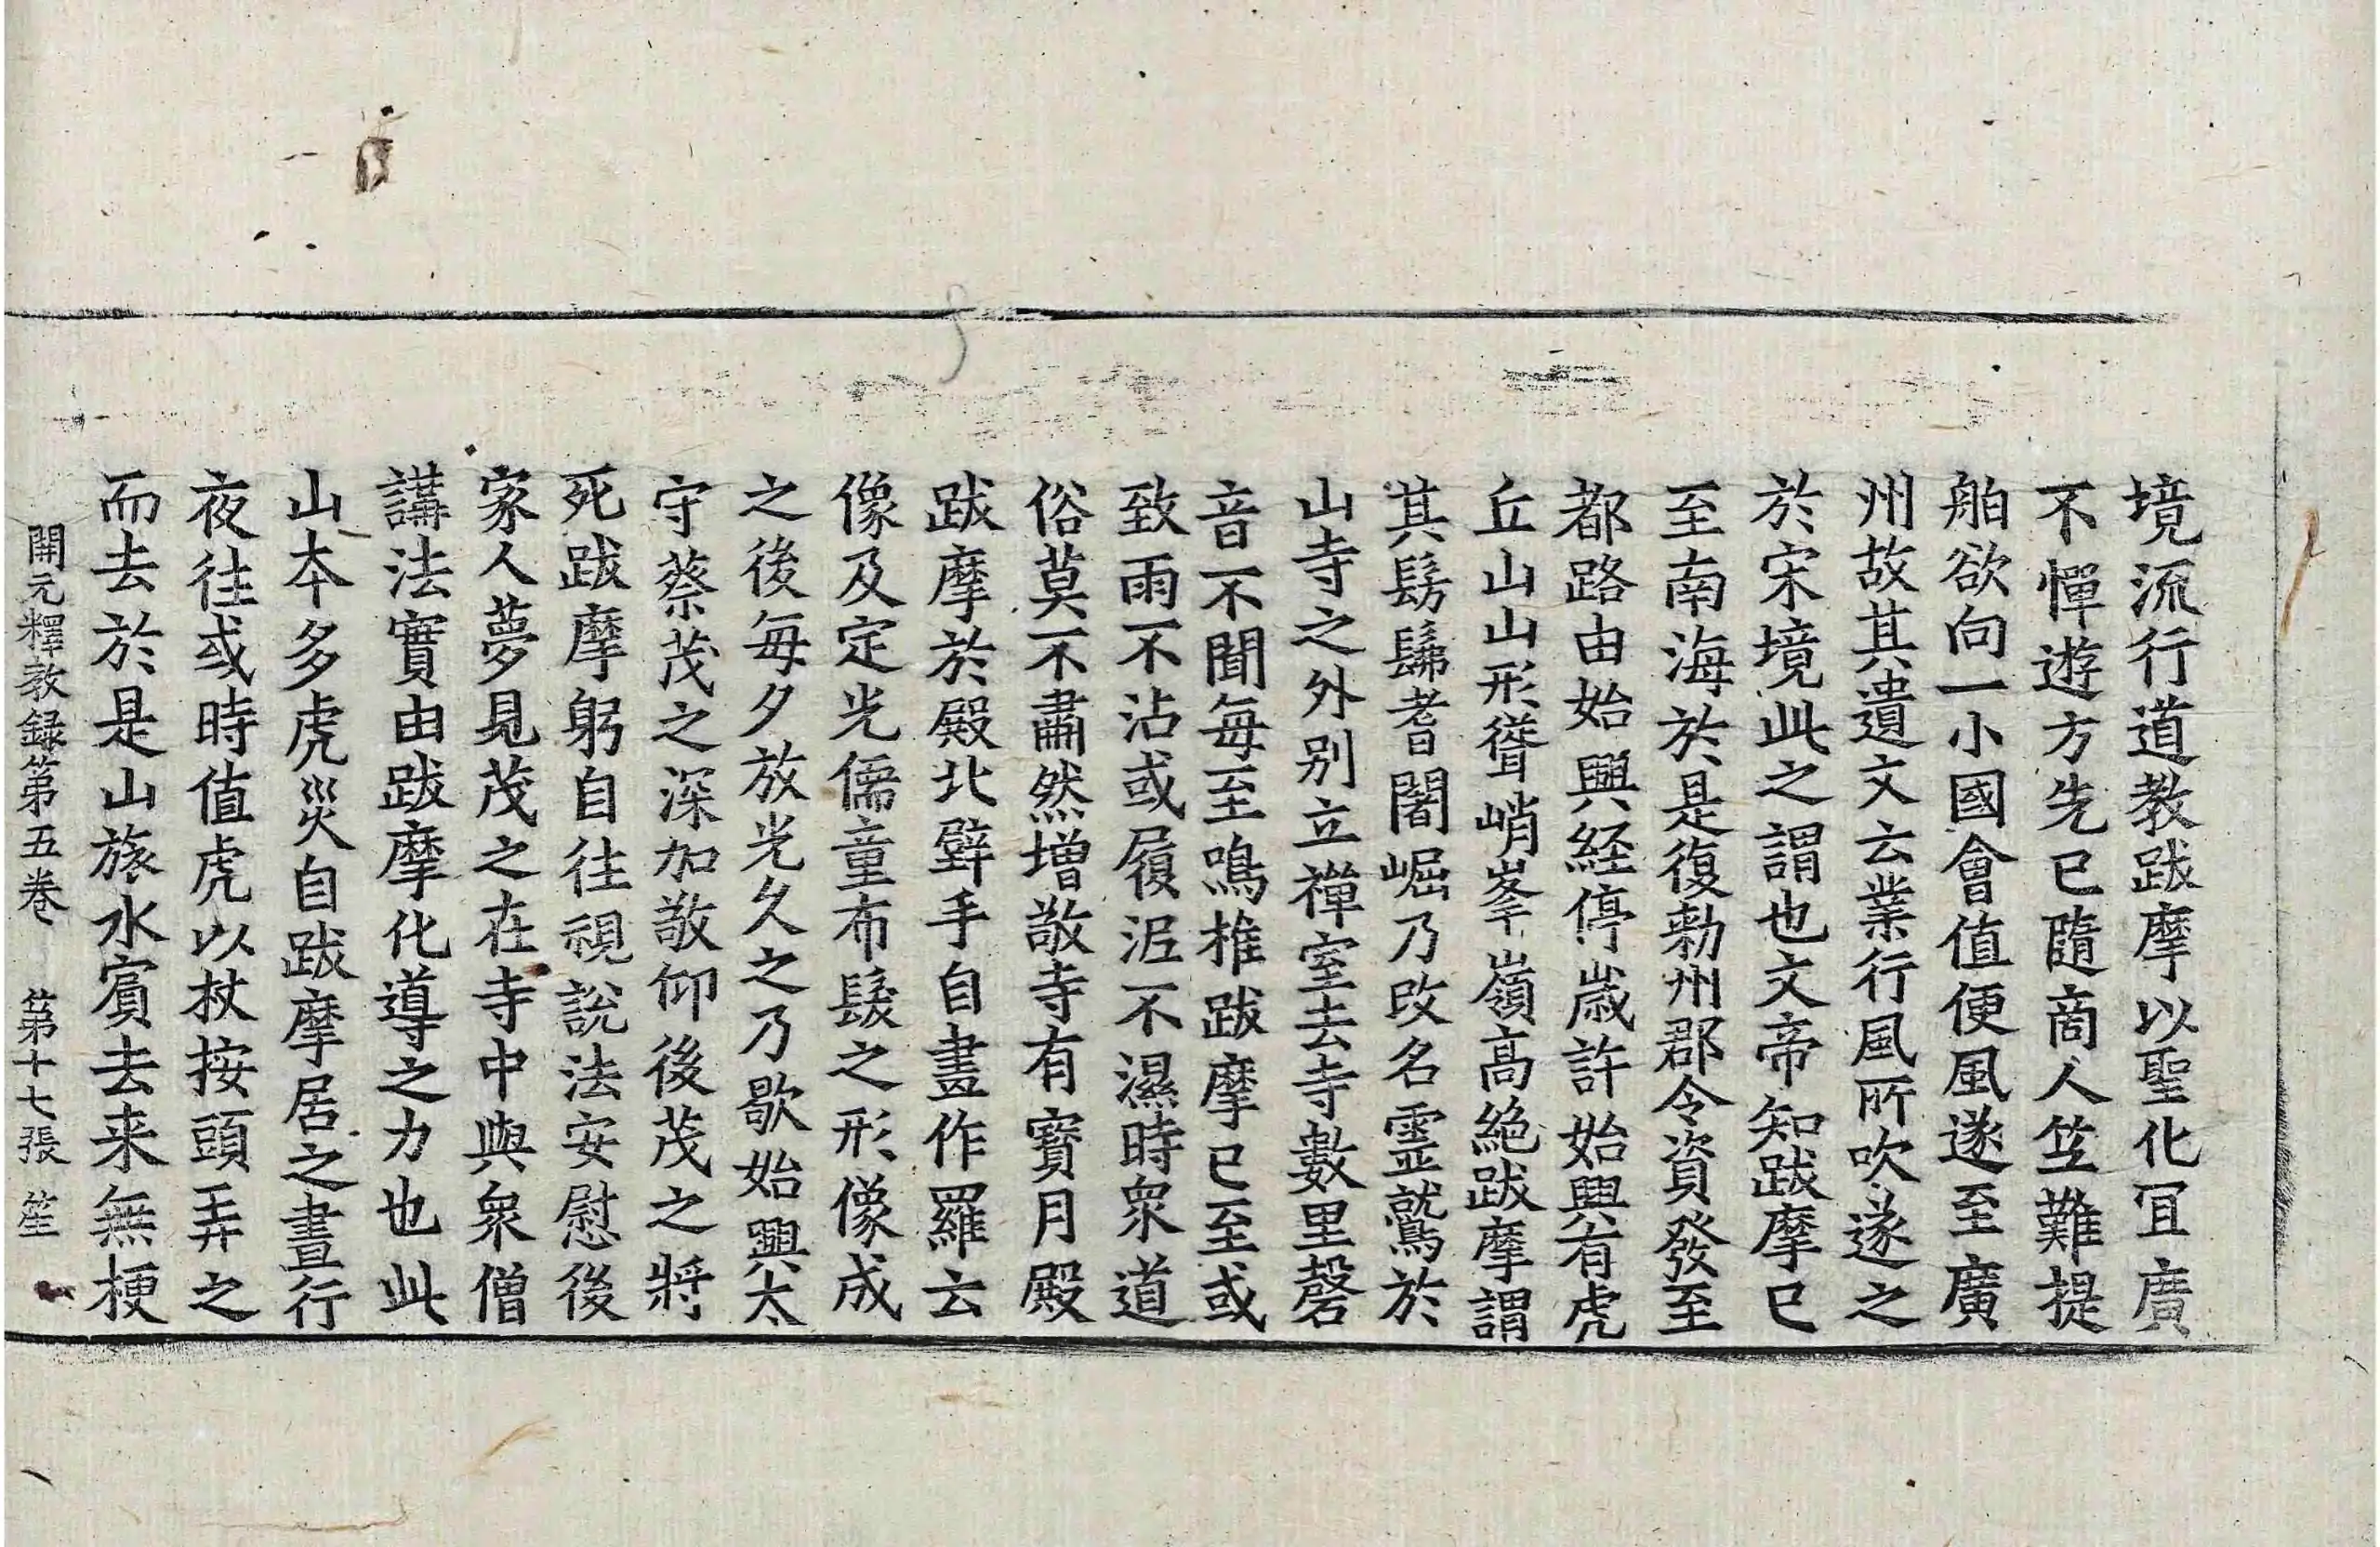 境流行道教跋摩以聖化冝廣
不憚遊方先已隨商人竺難提
舶欲向一小國會值便風遂至廣
州故其遺文云業行風所吹遂之
於宋境此之謂也文帝知跋摩已
至南海於是復勑州郡令資發至
都路由始興経停歳許始興有虎
丘山山形聳峭峯嶺高絶跋摩謂
其髣髴耆闍崛乃改名靈鷲於
山寺之外別立禪室去寺數里磬
音不聞每至鳴椎跋摩已至或
致雨不沾或履泥不濕時衆道
俗莫不肅然增敬寺有寳月殿
跋摩於殿北壁手自畫作羅云
像及定光儒童布髮之形像成
之後每夕放光久之乃歇始興太
守蔡茂之深加敬仰後茂之將
死跋摩躬自往視說法安慰後
家人夢見茂之在寺中與衆僧
講法實由跋摩化導之力也此
山本多虎災自跋摩居之晝行
夜往或時值虎以杖按頭弄之
而去於是山旅水賓去来無梗
開元釋教録第五卷 第十七張 笙